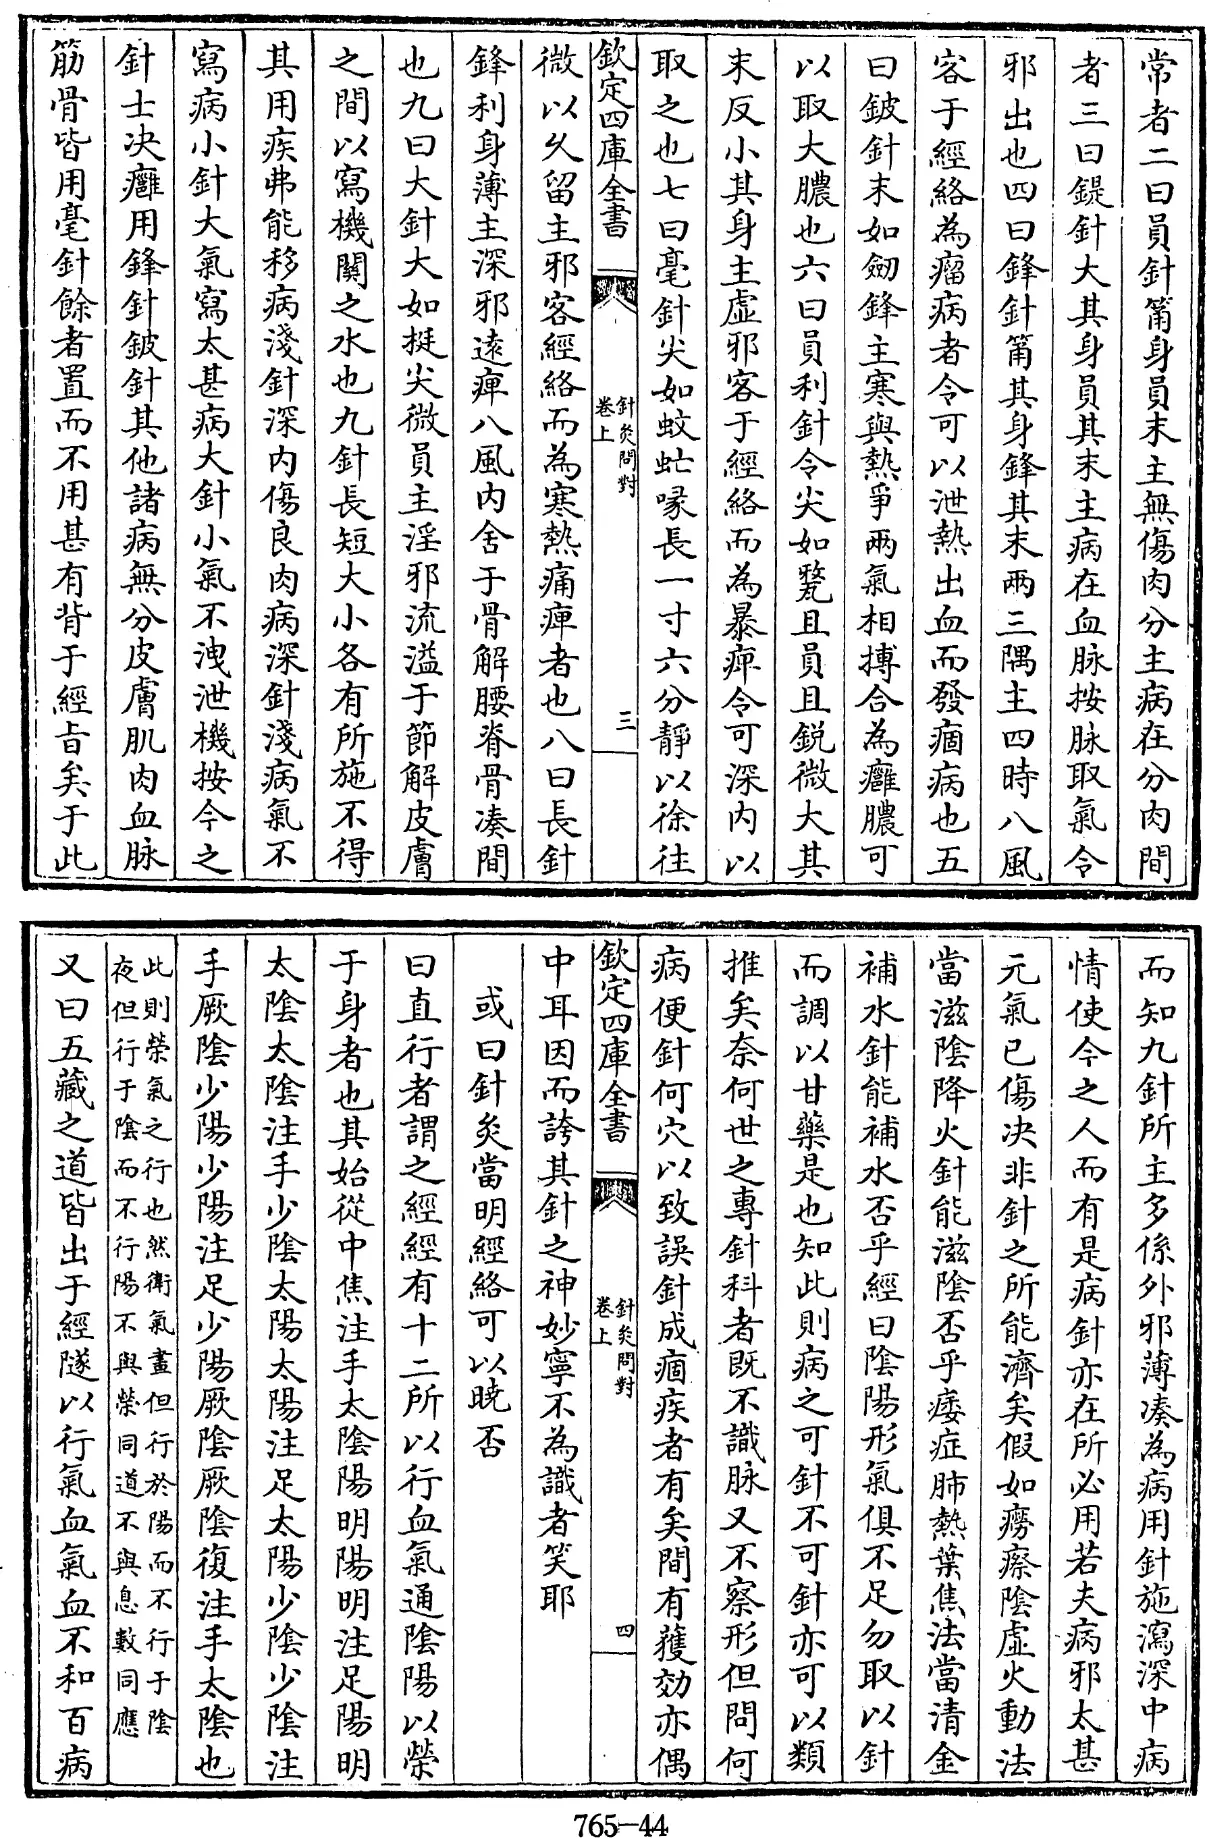 常者二曰員針筩身員末主無傷肉分主病在分肉間
者三曰鍉針大其身員其末主病在血脉按脉取氣令
邪出也四曰鋒針筩其身鋒其末兩三隅主四時八風
客于經絡為瘤病者令可以泄熱出血而發痼病也五
曰鈹針末如劒鋒主寒與熱爭兩氣相搏合為癰膿可
以取大膿也六曰員利針令尖如氂且員且鋭微大其
末反小其身主虛邪客于經絡而為暴痺令可深内以
取之也七曰毫針尖如蚊虻喙長一寸六分靜以徐往
欽定四庫全書
針灸問對
卷上
三
微以久留主邪客經絡而為寒熱痛痺者也八曰長針
鋒利身薄主深邪遠痺八風内舍于骨解腰脊骨凑間
也九曰大針大如挺尖微員主淫邪流溢于節解皮膚
之間以寫機關之水也九針長短大小各有所施不得
其用疾弗能移病淺針深内傷良肉病深針淺病氣不
寫病小針大氣寫太甚病大針小氣不洩泄機按今之
針士决癰用鋒針鈹針其他諸病無分皮膚肌肉血脉
筋骨皆用毫針餘者置而不用甚有背于經旨矣于此
而知九針所主多係外邪薄凑為病用針施瀉深中病
情使今之人而有是病針亦在所必用若夫病邪太甚
元氣已傷决非針之所能濟矣假如癆瘵陰虛火動法
當滋陰降火針能滋陰否乎痿症肺熱葉焦法當清金
補水針能補水否乎經曰陰陽形氣俱不足勿取以針
而調以甘藥是也知此則病之可針不可針亦可以類
推矣奈何世之專針科者既不識脉又不察形但問何
病便針何穴以致誤針成痼疾者有矣間有獲効亦偶
欽定四庫全書
針灸問對
卷上
四
中耳因而誇其針之神妙寧不為識者笑耶
或曰針灸當明經絡可以曉否
曰直行者謂之經經有十二所以行血氣通陰陽以榮
于身者也其始從中焦注手太陰陽明陽明注足陽明
太陰太陰注手少陰太陽太陽注足太陽少陰少陰注
手厥陰少陽少陽注足少陽厥陰厥陰復注手太陰也
此則榮氣之行也然衛氣晝但行於陽而不行于陰
夜但行于陰而不行陽不與榮同道不與息數同應
又曰五藏之道皆出于經隧以行氣血氣血不和百病
765–44